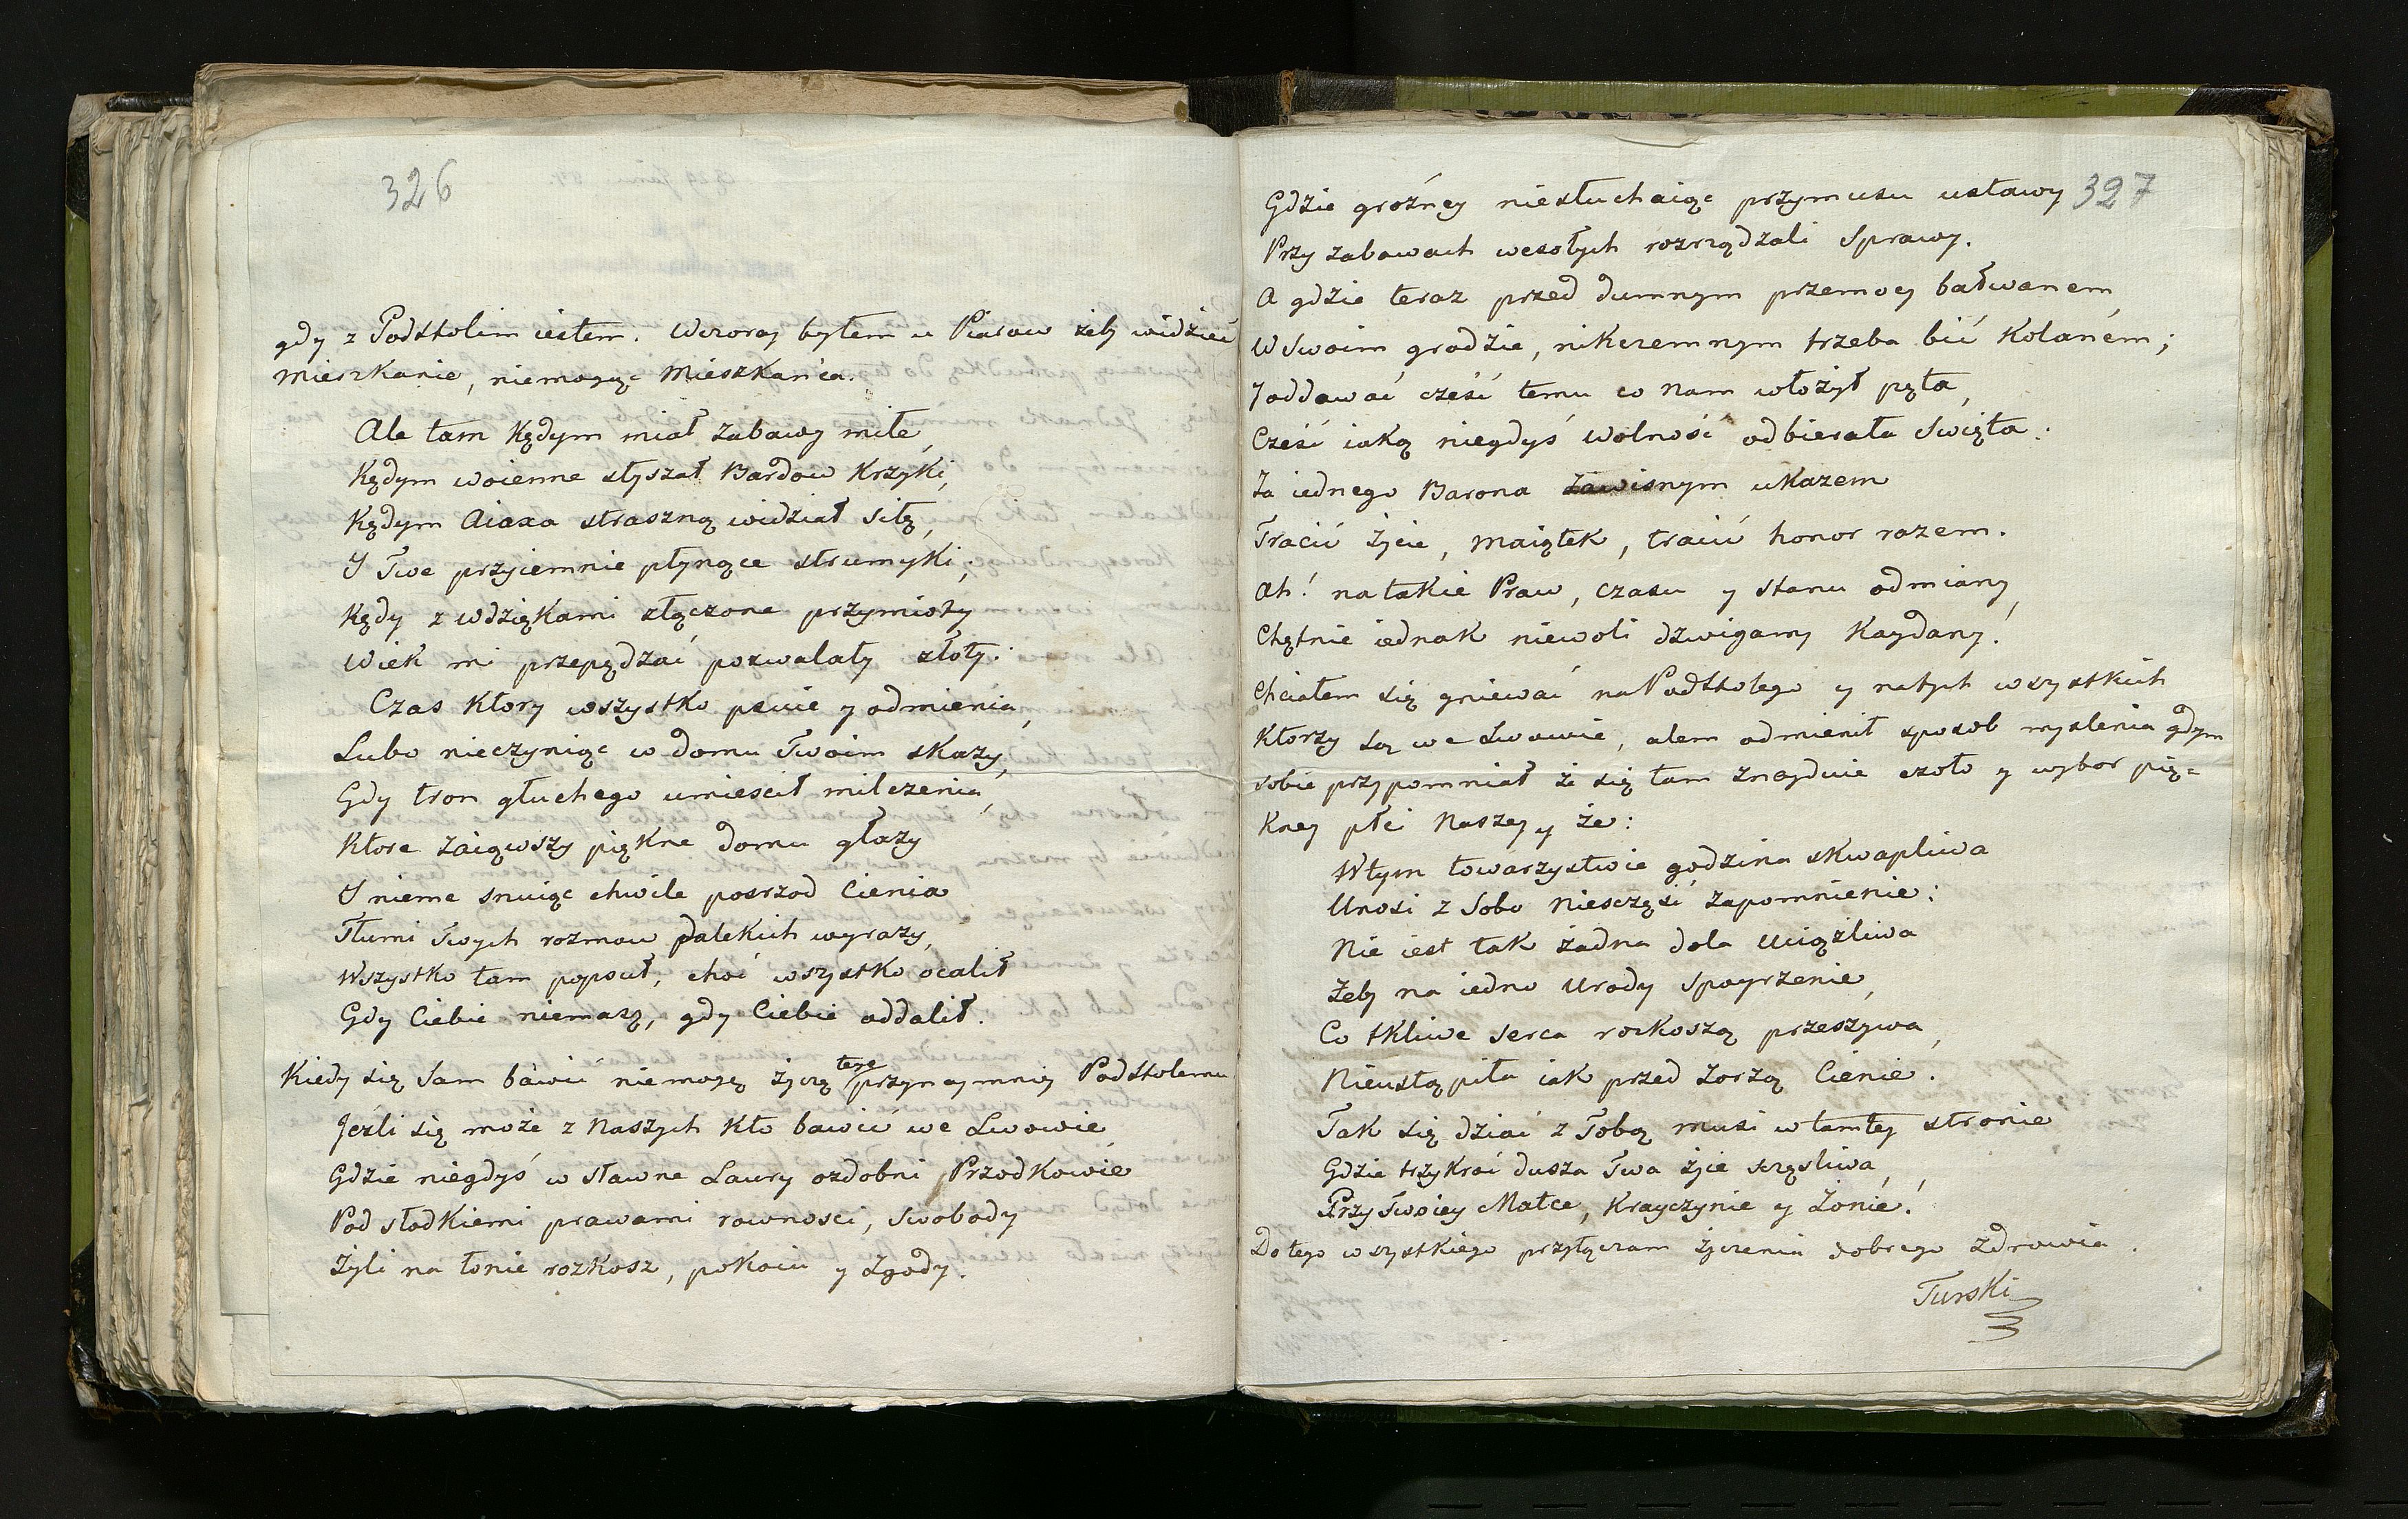 326
gdy z Podstolim iestem. Wczoray byłem u Piarow żeby widzieć
mieszkanie, niemogąc Mieszkańca.
Ale tam kędym miał zabawy miłe,
Kędym woienne słyszał Bardow krzyki,
Kędym Aiaxa straszną widział siłę,
Y Twe przyiemnie płynące strumyki;
Kędy z wdziękami złączone przymioty
Wiek mi przepędzać pozwalały złoty:
Czas ktory wszystko psuie y odmienia,
Lubo nieczyniąc w domu Twoim skazy,
Gdy tron głuchego umieścił milczenia,
Ktore zaiąwszy piękne domu głazy
Y nieme snuiąc chwile posrzod Cienia
Tłumi Twych rozmow dalekich wyrazy,
Wszystko tam popsuł, choć wszystko ocalił
Gdy Ciebie niemasz, gdy Ciebie oddalił.
Kiedy się Sam bawić niemogę życzę tego przynaymniey Podstolemu
Jeźli się może z Naszych kto bawić we Lwowie,
Gdzie niegdyś w sławne Laury ozdobni Przodkowie
Pod słodkiemi prawami rowności, swobody
Żyli na łonie rozkosz, pokoiu y zgody.
327
Gdzie groźney niesłuchaiąc przymusu ustawy
Przy zabawach wesołych rozrządzali Sprawy.
A gdzie teraz przed dumnym przemocy bałwanem
W Swoim grodzie, nikczemnym trzeba bić Kolanem;
Y oddawać cześć temu co Nam włożył pęta,
Cześć iaką niegdyś wolność odbierała Swięta:
Za iednego Barona zawisnym ukazem
Tracić życie, maiątek, tracić honor razem.
Ah! na takie Praw, czasu y stanu odmiany,
Chętnie iednak niewoli dzwigamy Kaydany!
Chciałem się gniewać na Podstolego y na tych wszystkich
Ktorzy są we Lwowie, alem odmienił sposob myslenia gdym
sobie przypomniał że się tam znayduie czoło y wybor pię=
kney płci Naszey y że:
W tym towarzystwie godzina skwapliwa
Unosi z Sobo Niesczęść zapomnienie:
Nie iest tak żadna dola uciążliwa
Żeby na iedno Urody Spoyrzenie,
Co tkliwe serca rozkoszą przeszywa,
Nieustąpiła iak przed zorzą Cienie.
Tak się dziać z Tobą musi w tamtey stronie
Gdzie trzykroć dusza Twa żyie sczęsliwa,
Przy Twoiey Matce, Krayczynie y Żonie!
Do tego wszystkiego przyłączam życzenia dobrego zdrowia.
Turski